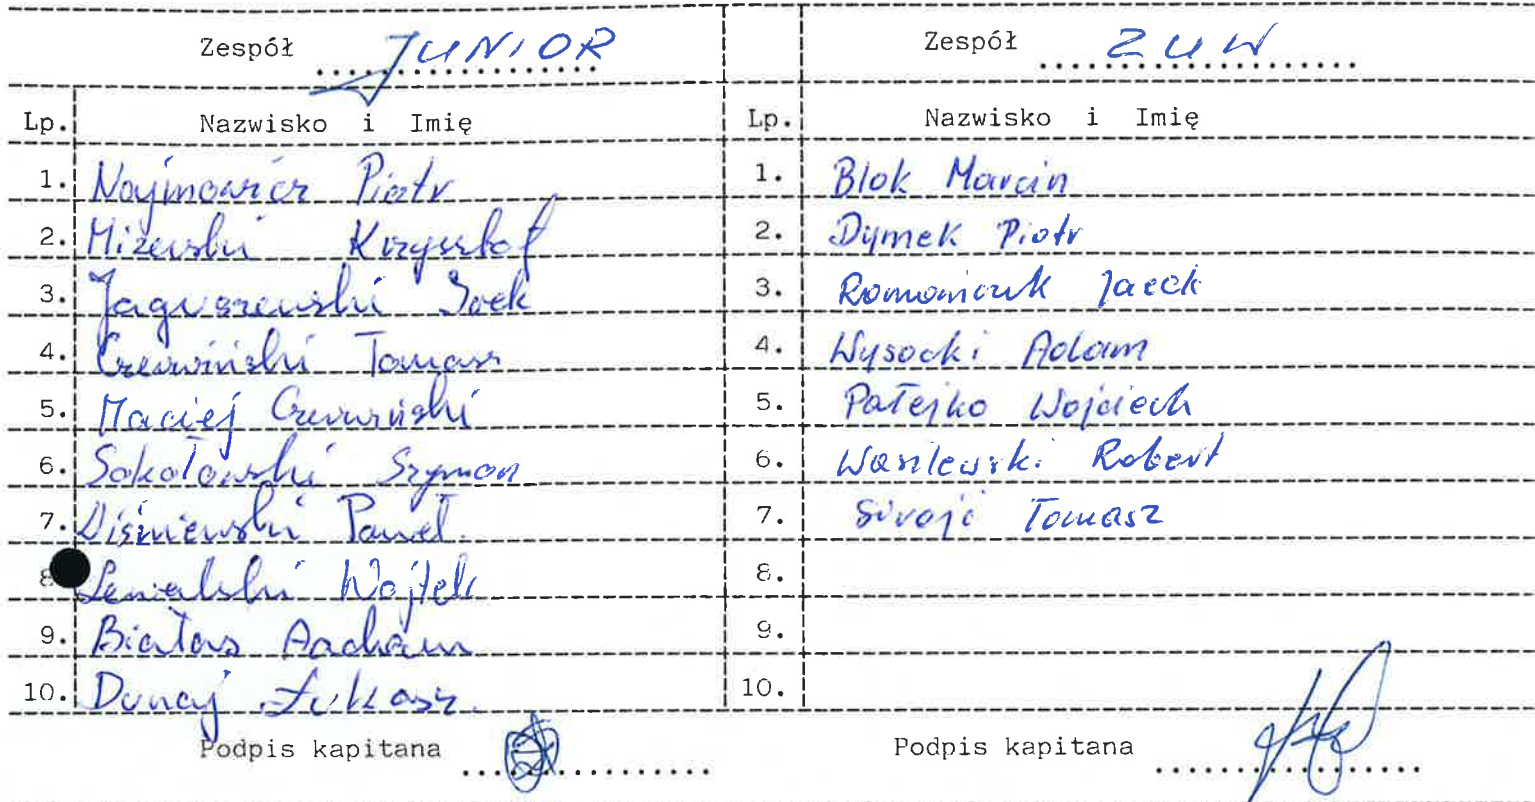 Zespół JUNIOR
Lp. Nazwisko i Imię
1. Najmowicz Piotr
2. Miżewski Krzysztof
3. Jaguszewski Jacek
4. Czerwiński Tomasz
5. Maciej Czerwiński
6. Sokołowski Szymon
7. Wiśniewski Paweł.
8. Wojtek
9. Białas
10. Dunaj Łukasz.
Podpis kapitana
Zespół ZUW
Lp. Nazwisko i Imię
1. Blok Marcin
2. Dymek Piotr
3. Romańczuk Jacek
4. Wysocki Adam
5. Patejko Wojciech
6. Wasilewski Robert
7. Tomasz
8.
9.
10.
Podpis kapitana